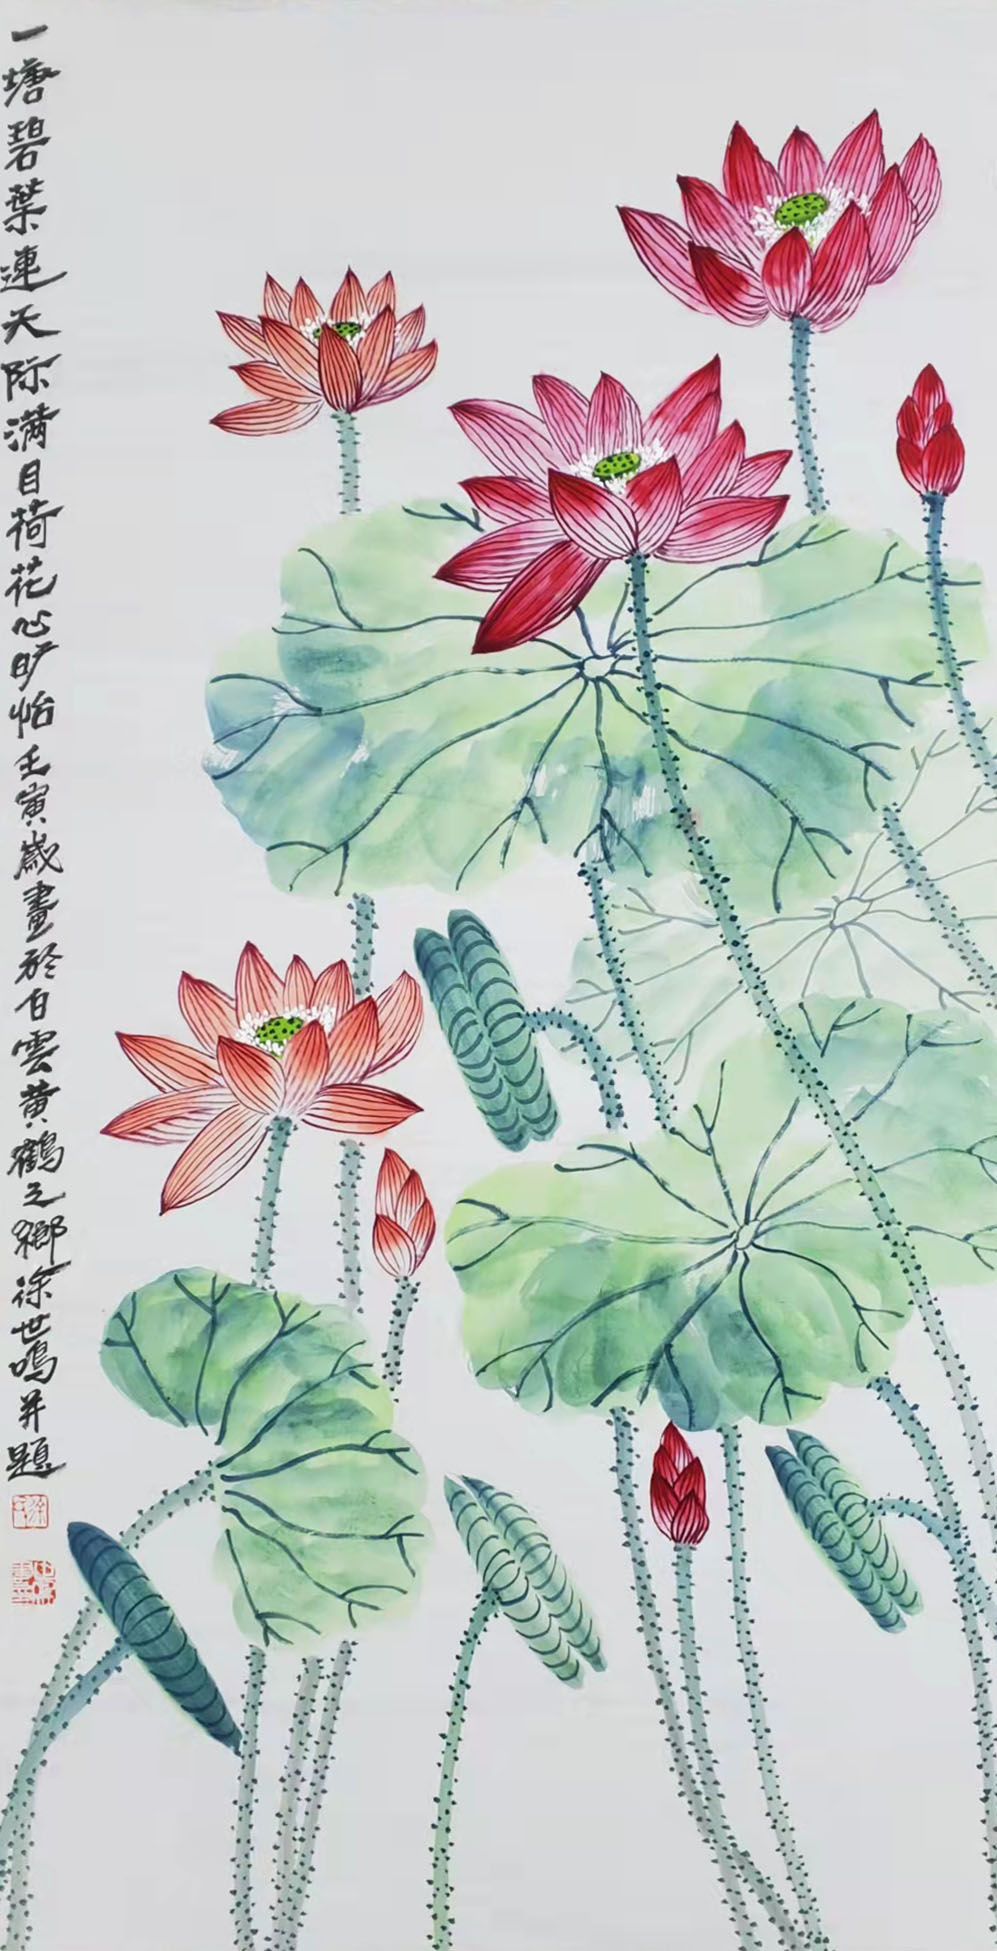 一塘碧葉連天际满目荷花心旷怡壬寅歲畫於白雲黄鶴之鄉徐世鸣并題